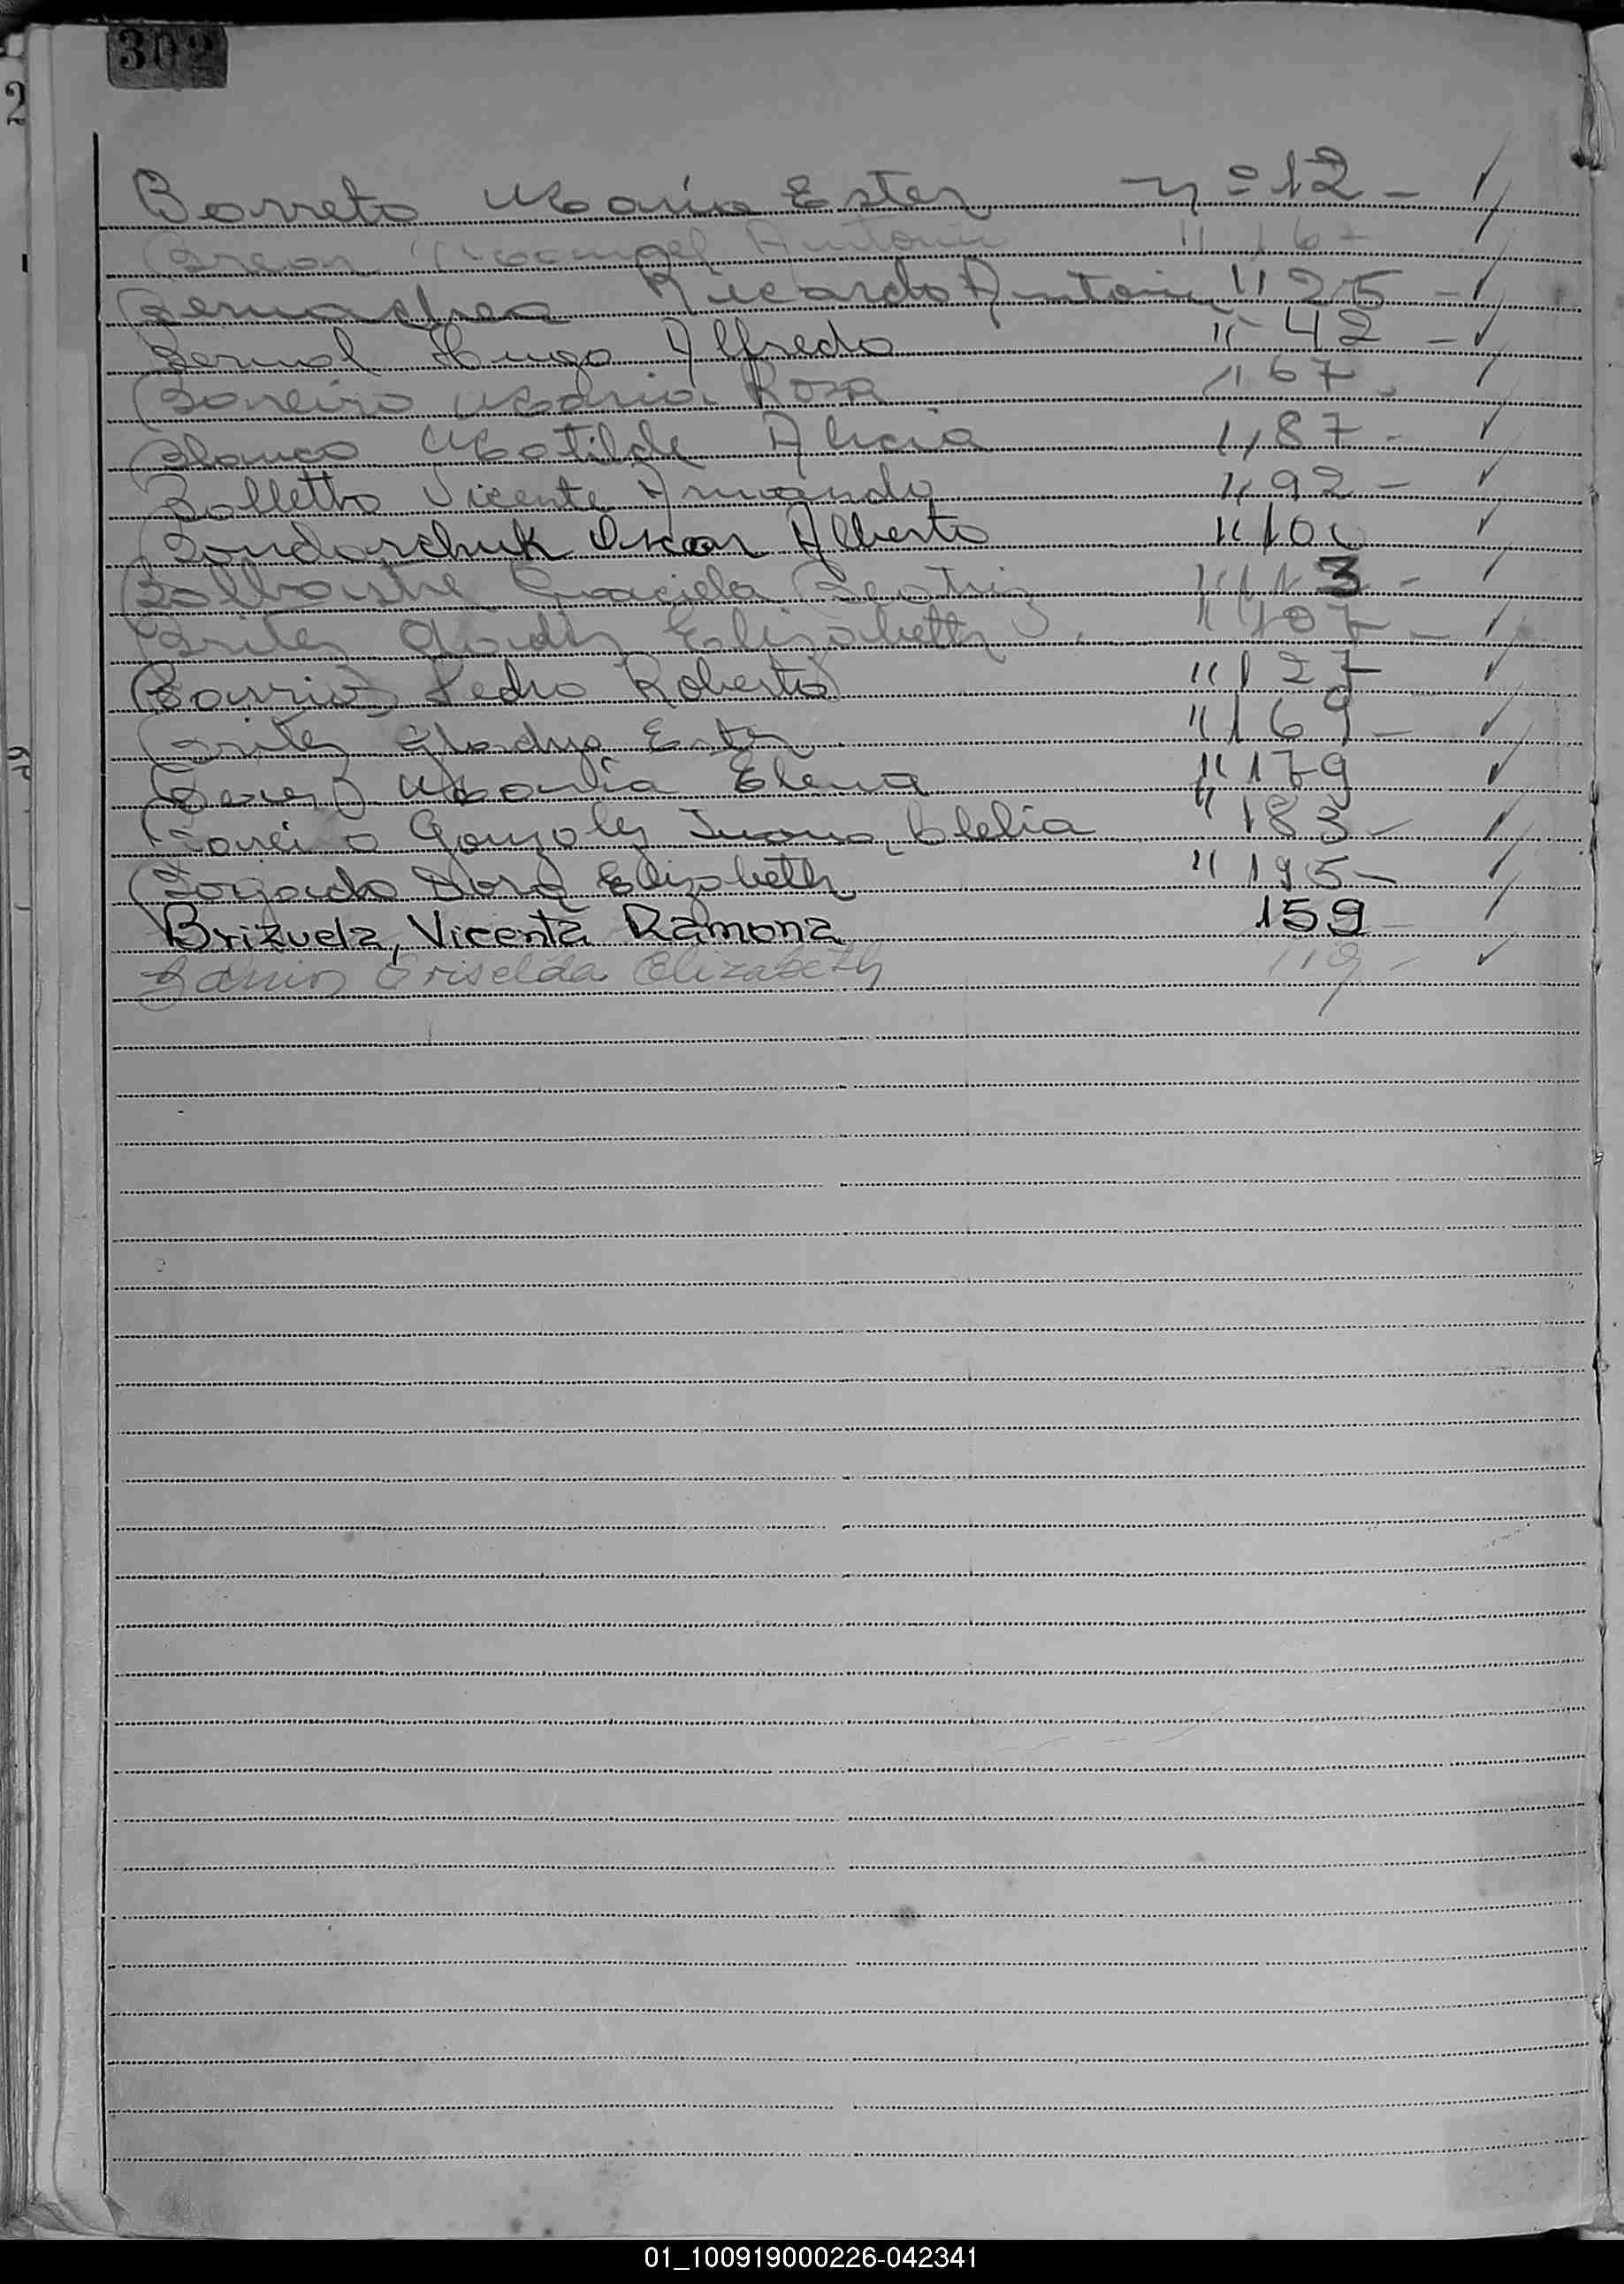 302
2
Barreto Maria Ester nº 12 - ✓
Antonio " 16 -
Ricardo Antonio " 25 - ✓
Bernal Hugo Alfredo " 42 - ✓
Maria Rosa " 67 -
Blanco Matilde Alicia " 87 - ✓
Balletto Vicente Armando " 92 - ✓
Bondarchuk Oscar Alberto " 100 ✓
Balbastre Graciela Beatriz " 113 -
Britez Gladis Elizabeth " 107 - ✓
Barrios Pedro Roberto " 127 ✓
Britez Gladys Ester " 169 - ✓
Maria Elena " 179 ✓
Gonzalez Juana Clelia " 183 - ✓
Bogado Dora Elizabeth " 195 - ✓
Brizuela, Vicenta Ramona 159 -
Griselda Elizabeth 119 - ✓
01_100919000226-042341